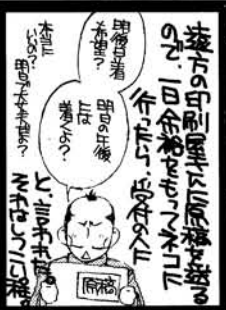 遠方の印刷屋さんに原稿を送る
ので、一日余裕をもってネコに
行ったら、受付の人に
明後日着
希望?
明日の午後
には
着くよ?
本当に
いいの?
明日でなくてもよ?
と、言われた。
それはしつこい程。
原稿